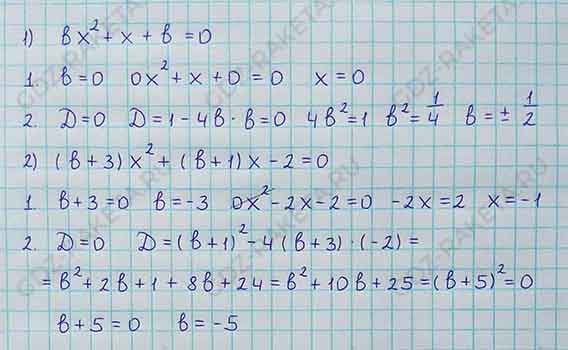 1) bx² + x + b = 0
1. b = 0 0x² + x + 0 = 0 x = 0
2. D = 0 D = 1 - 4b · b = 0 4b² = 1 b² = 1/4 b = ± 1/2
2) (b + 3)x² + (b + 1)x - 2 = 0
1. b + 3 = 0 b = -3 0x² - 2x - 2 = 0 -2x = 2 x = -1
2. D = 0 D = (b + 1)² - 4(b + 3) · (-2) =
= b² + 2b + 1 + 8b + 24 = b² + 10b + 25 = (b + 5)² = 0
b + 5 = 0 b = -5
GDZ-RAKETA.RU